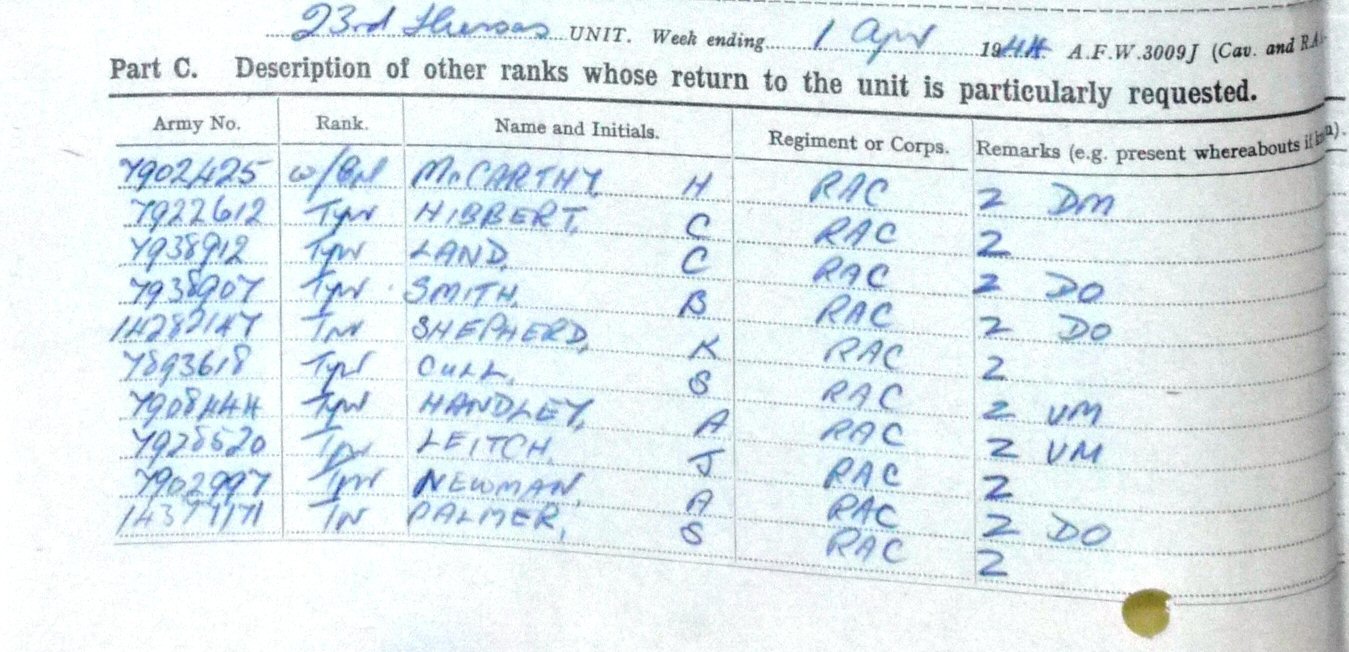 23rd Hussars UNIT. Week ending 1 Apr 1944. A.F.W.3009J (Cav. and RA
Part C. Description of other ranks whose return to the unit is particularly requested.
Army No. Rank. Name and Initials. Regiment or Corps. Remarks (e.g. present whereabouts if
7902425 McCARTHY, H RAC 2 DM
7922612 Tpr HIBBERT, C RAC 2
7938912 Tpr LAND, C RAC 2 DO
7938907 Tpr SMITH, B RAC 2 DO
14282147 Tpr SHEPHERD, K RAC 2
7893618 Tpr CULL, S RAC 2 VM
7908444 Tpr HANDLEY, A RAC 2 VM
7928520 Tpr LEITCH, J RAC 2
7902997 Tpr NEWMAN, A RAC 2 DO
Tpr PALMER, S RAC 2